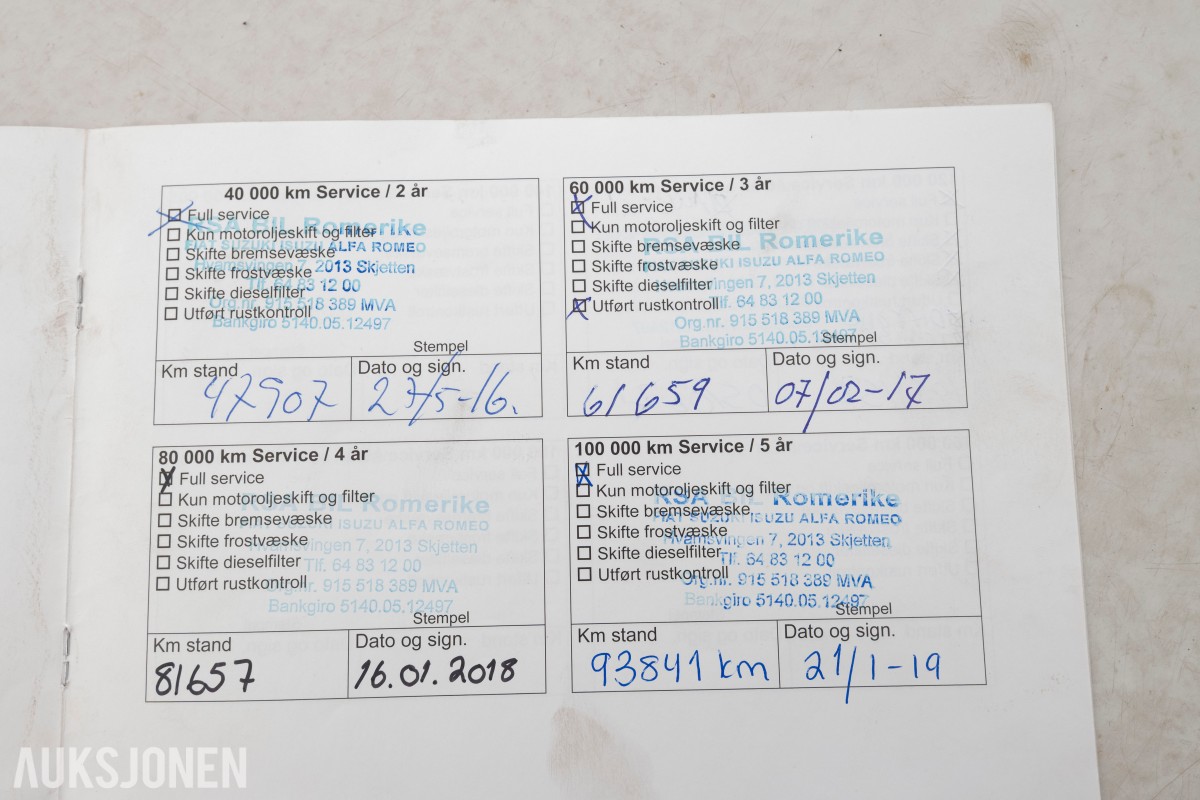 40 000 km Service / 2 år
Full service
Kun motoroljeskift og filter
Skifte bremsevæske
Skifte frostvæske
Skifte dieselfilter
Utført rustkontroll
RSA BIL Romerike
FIAT SUZUKI ISUZU ALFA ROMEO
Hvamsvingen 7, 2013 Skjetten
Tlf. 64 83 12 00
Org.nr. 915 518 389 MVA
Bankgiro 5140.05.12497
Stempel
Km stand
47907
Dato og sign.
27/5-16.
60 000 km Service / 3 år
Full service
Kun motoroljeskift og filter
Skifte bremsevæske
Skifte frostvæske
Skifte dieselfilter
Utført rustkontroll
RSA BIL Romerike
FIAT SUZUKI ISUZU ALFA ROMEO
Hvamsvingen 7, 2013 Skjetten
Tlf. 64 83 12 00
Org.nr. 915 518 389 MVA
Bankgiro 5140.05.12497
Stempel
Km stand
61659
Dato og sign.
07/02-17
80 000 km Service / 4 år
Full service
Kun motoroljeskift og filter
Skifte bremsevæske
Skifte frostvæske
Skifte dieselfilter
Utført rustkontroll
RSA BIL Romerike
FIAT SUZUKI ISUZU ALFA ROMEO
Hvamsvingen 7, 2013 Skjetten
Tlf. 64 83 12 00
Org.nr. 915 518 389 MVA
Bankgiro 5140.05.12497
Stempel
Km stand
81657
Dato og sign.
16.01.2018
100 000 km Service / 5 år
Full service
Kun motoroljeskift og filter
Skifte bremsevæske
Skifte frostvæske
Skifte dieselfilter
Utført rustkontroll
RSA BIL Romerike
FIAT SUZUKI ISUZU ALFA ROMEO
Hvamsvingen 7, 2013 Skjetten
Tlf. 64 83 12 00
Org.nr. 915 518 389 MVA
giro 5140.05.12497
Stempel
Km stand
93841 km
Dato og sign.
21/1-19
AUKSJONEN